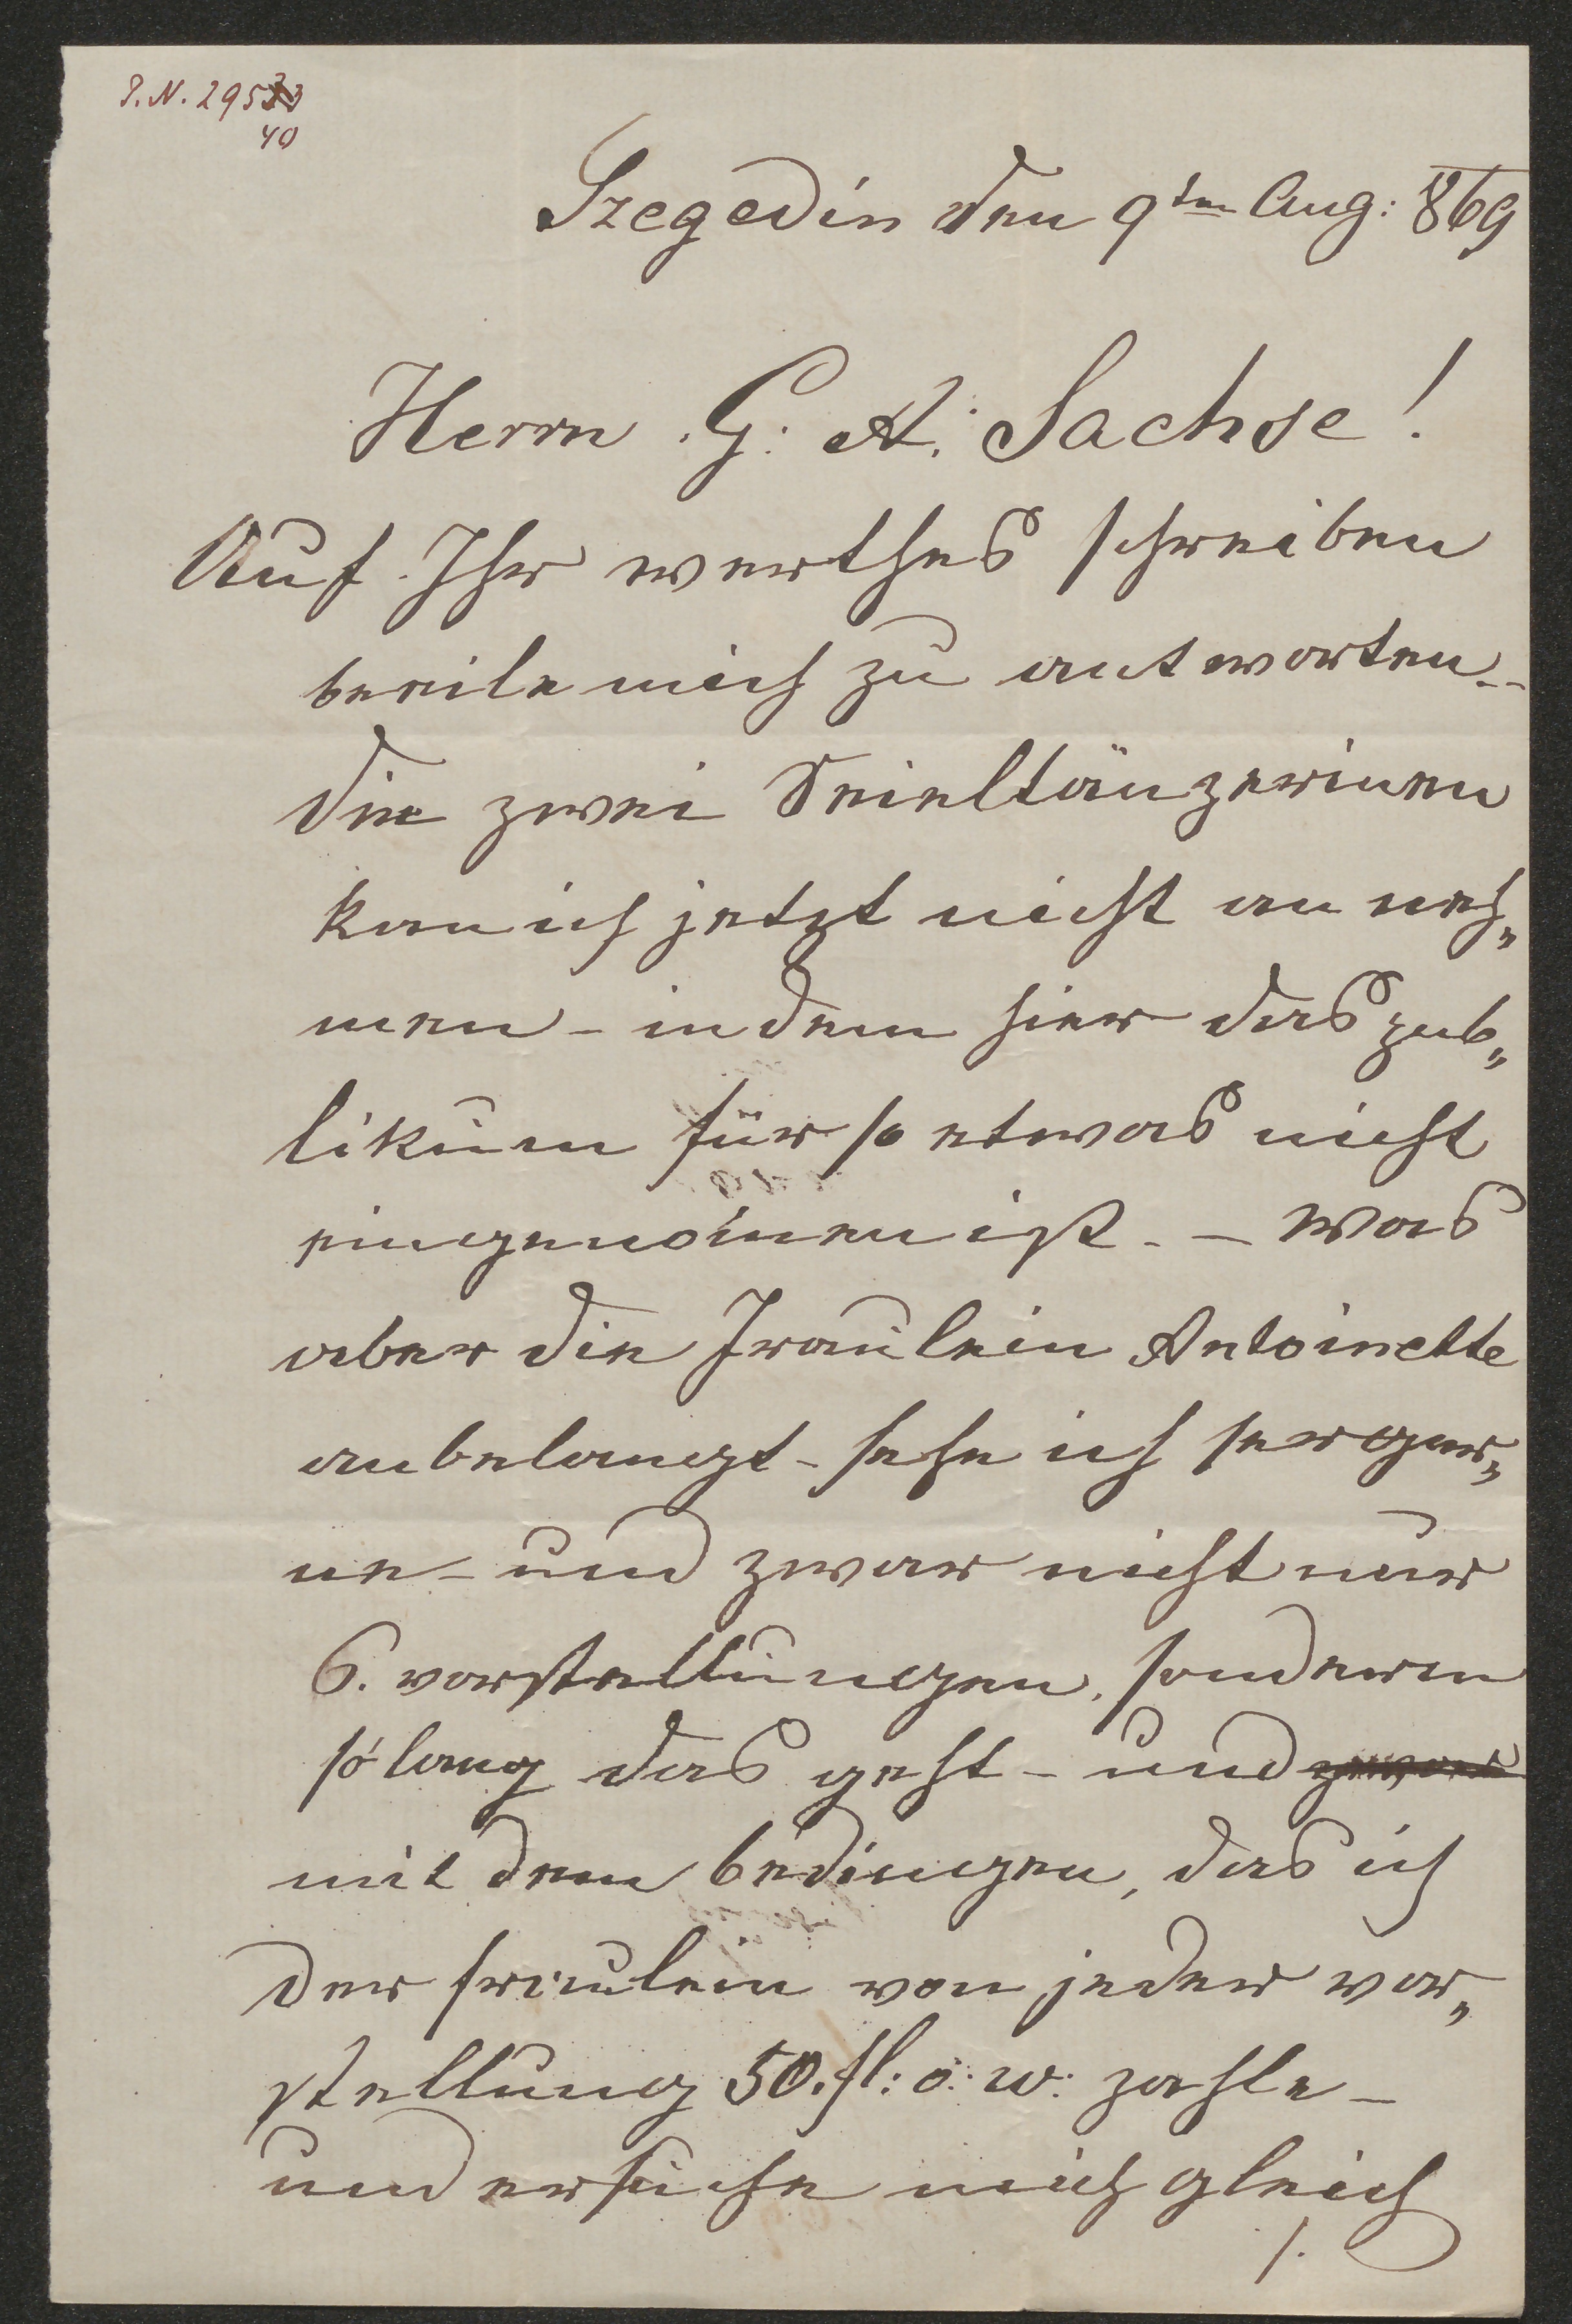 I.N. 29533
40
Szegedin den 9ten Aug: 869
Herrn G: A: Sachse!
Auf Ihr werthes schreiben
beeile mich zu antworten –
die zwei Seieltänzerinen
kan ich jetzt nicht an neh„
men – in dem hier das pub„
likum für so etwas nicht
eingenom̅en ist – was
aber die Fräulein Antoinette
anbelangt – sehe ich ser ger„
ne – und zwar nicht nur
6. vorstellungen, sonderen
so lang das geht – und zwar
mit dem bedingen, das ich
der freulein von jeder vor„
stellung 50. fl: ö: w: zahle –
und ersuche mich gleich
/.